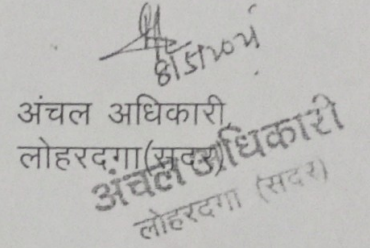 अंचल अधिकारी,
लोहरदगा(सदर)
अंचल अधिकारी
लोहरदगा (सदर)